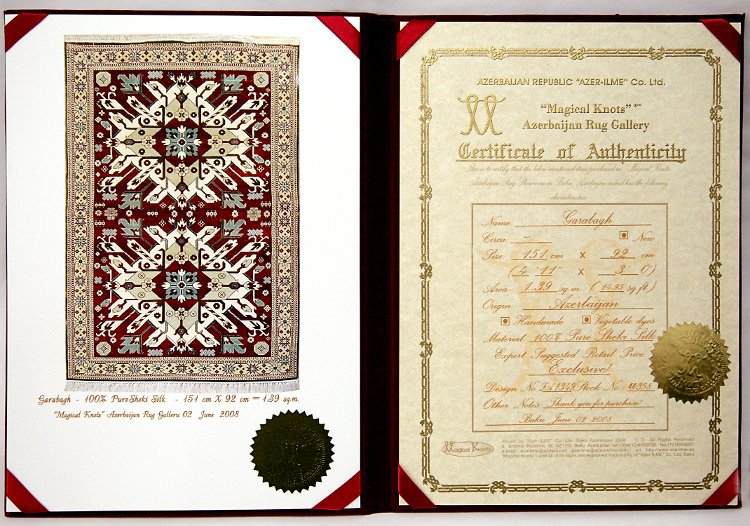 Garabagh - 100% Pure Sheki Silk - 151 cm X 92 cm = 1.39 sq.m.
"Magical Knots" Azerbaijan Rug Gallery 02 June 2008
AZERBAIJAN REPUBLIC "AZER-ILME" Co. Ltd.
"Magical Knots"
Azerbaijan Rug Gallery
Certificate of Authenticity
This is to notify that the below mentioned item purchased in Magical Knots
Azerbaijan Rug Showroom in Baku Azerbaijan indeed has the following
characteristics
Name Garabagh
Circa: - New
Size 151 cm x 92 cm
(4 11 x 3 0)
Area 1.39 sq.m. (14.95 sq ft)
Origin Azerbaijan
Handmade Vegetable dyes
Material 100% Pure Sheki Silk
Expert Suggested Retail Price
Exclusive!
Design No Stock No:
Other Notes: Thank you for purchase!
Baku June 02 2008
Magical Knots